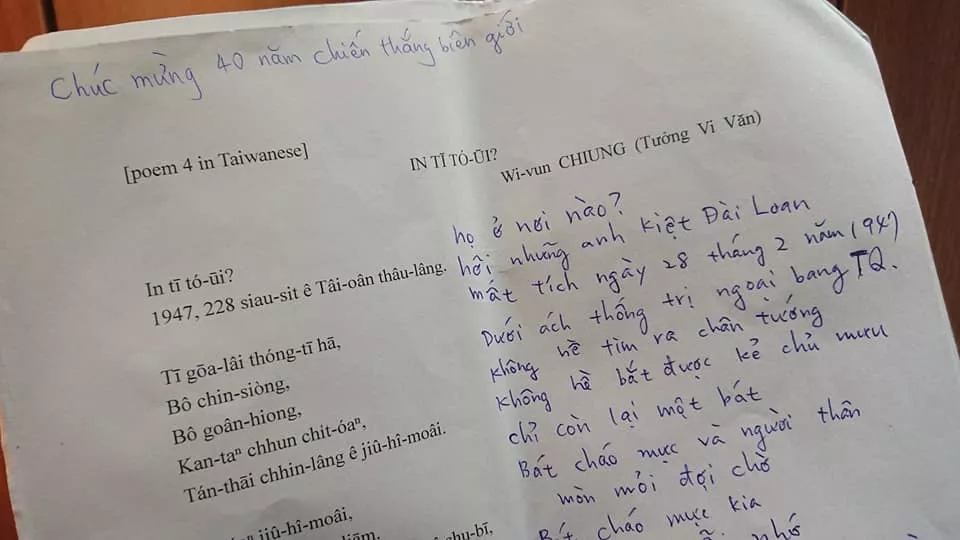 Chúc mừng 40 năm chiến thắng biên giới
[poem 4 in Taiwanese]
IN TĪ TÓ-ŪI?
Wi-vun CHIUNG (Tưởng Vi Văn)
In tī tó-ūi?
1947, 228 siau-sit ê Tâi-oân thâu-lâng.
Tī gōa-lâi thóng-tī hā,
Bô chin-siòng,
Bô goân-hiong,
Kan-taⁿ chhun chit-óaⁿ,
Tán-thāi chhin-lâng ê jiû-hî-moâi.
jiû-hî-moâi,
họ ở nơi nào?
hỡi những anh kiệt Đài Loan
mất tích ngày 28 tháng 2 năm 1947
Dưới ách thống trị ngoại bang TQ.
không hề tìm ra chân tướng
không hề bắt được kẻ chủ mưu
chỉ còn lại một bát
Bát cháo mực và người thân
mòn mỏi đợi chờ
Bát cháo mực kia
nhớ